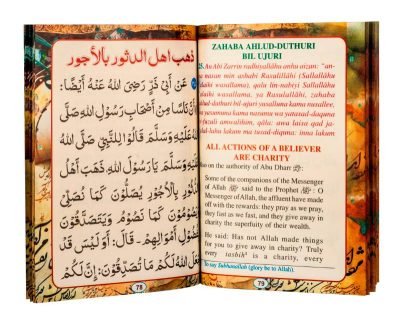 ذهب اهل الدثور بالأجور
عَنْ أَبِي ذَرٍّ رَضِيَ اللهُ عَنْهُ أَيْضًا:
أَنَّ نَاسًا مِنْ أَصْحَابِ رَسُولِ اللهِ صَلَّى
اللهُ عَلَيْهِ وَسَلَّمَ قَالُوا لِلنَّبِيِّ صَلَّى اللهُ
عَلَيْهِ وَسَلَّمَ يَا رَسُولَ اللهِ ذَهَبَ أَهْلُ
الدُّثُورِ بِالْأُجُورِ يُصَلُّونَ كَمَا نُصَلِّي
وَيَصُومُونَ كَمَا نَصُومُ وَيَتَصَدَّقُونَ
بِفُضُولِ أَمْوَالِهِمْ. قَالَ: أَوَ لَيْسَ قَدْ
لَكُمْ مَا تَصَدَّقُونَ: إِنَّ لَكُمْ
78
ZAHABA AHLUD-DUTHURI
BIL UJURI
25. An Abi Zarrin radhiyallâhu anhu aizan: "an-
na nasan min ashabi Rasulillâhi (Sallallâhu
alaihi wasallama), qalu lin-nabiyi Sallallâhu
alaihi wasallama, ya Rasulallâhi, zahaba
ahlud-duthuri bil ujuri yusalluna kama nusallee,
wa yasumuna kama nasumu wa yatasad-daquna
bi fudhuli amwalihim, qâla: awa laisa qad ja-
lallâhu lakum ma tusad-diquna: inna lakum
ALL ACTIONS OF A BELIEVER
ARE CHARITY
Also on the authority of Abu Dharr :
Some of the companions of the Messenger
of Allah said to the Prophet : O
Messenger of Allah, the affluent have made
off with the rewards: they pray as we pray,
they fast as we fast, and they give away in
charity the superfluity of their wealth.
He said: Has not Allah made things
for you to give away in charity? Truly
every tasbih¹ is a charity, every
To say Subhanallah (glory be to Allah).
79